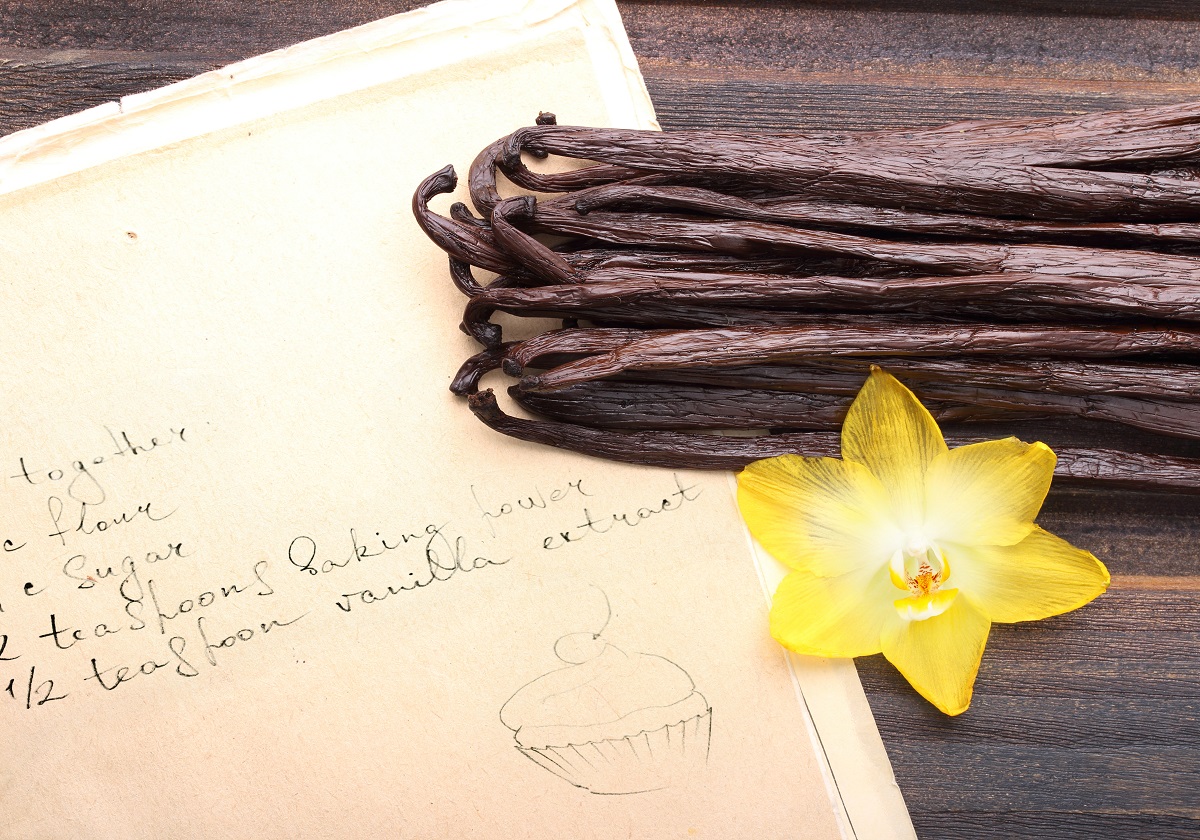 together
c flour
c sugar
2 teaspoons baking power
1/2 teaspoon vanilla extract